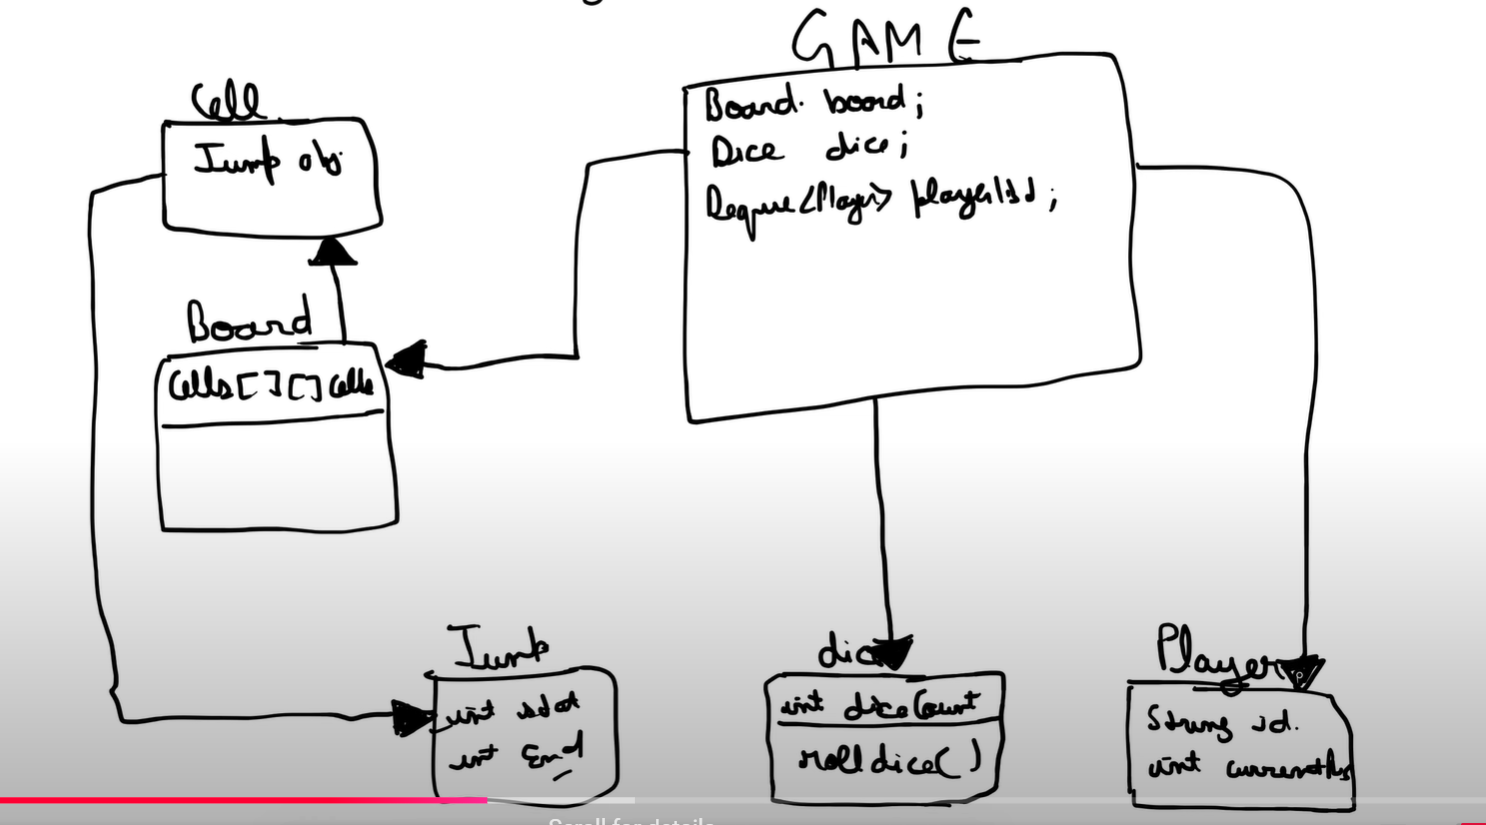 GAME
Board board;
Dice dice;
Deque<Player> playerlist;
Cell
Jump obj
Board
Cells[][] cells
Jump
int start
int End
dice
int diceCount
rolldice()
Player
String id.
int currentPos
Scroll for details